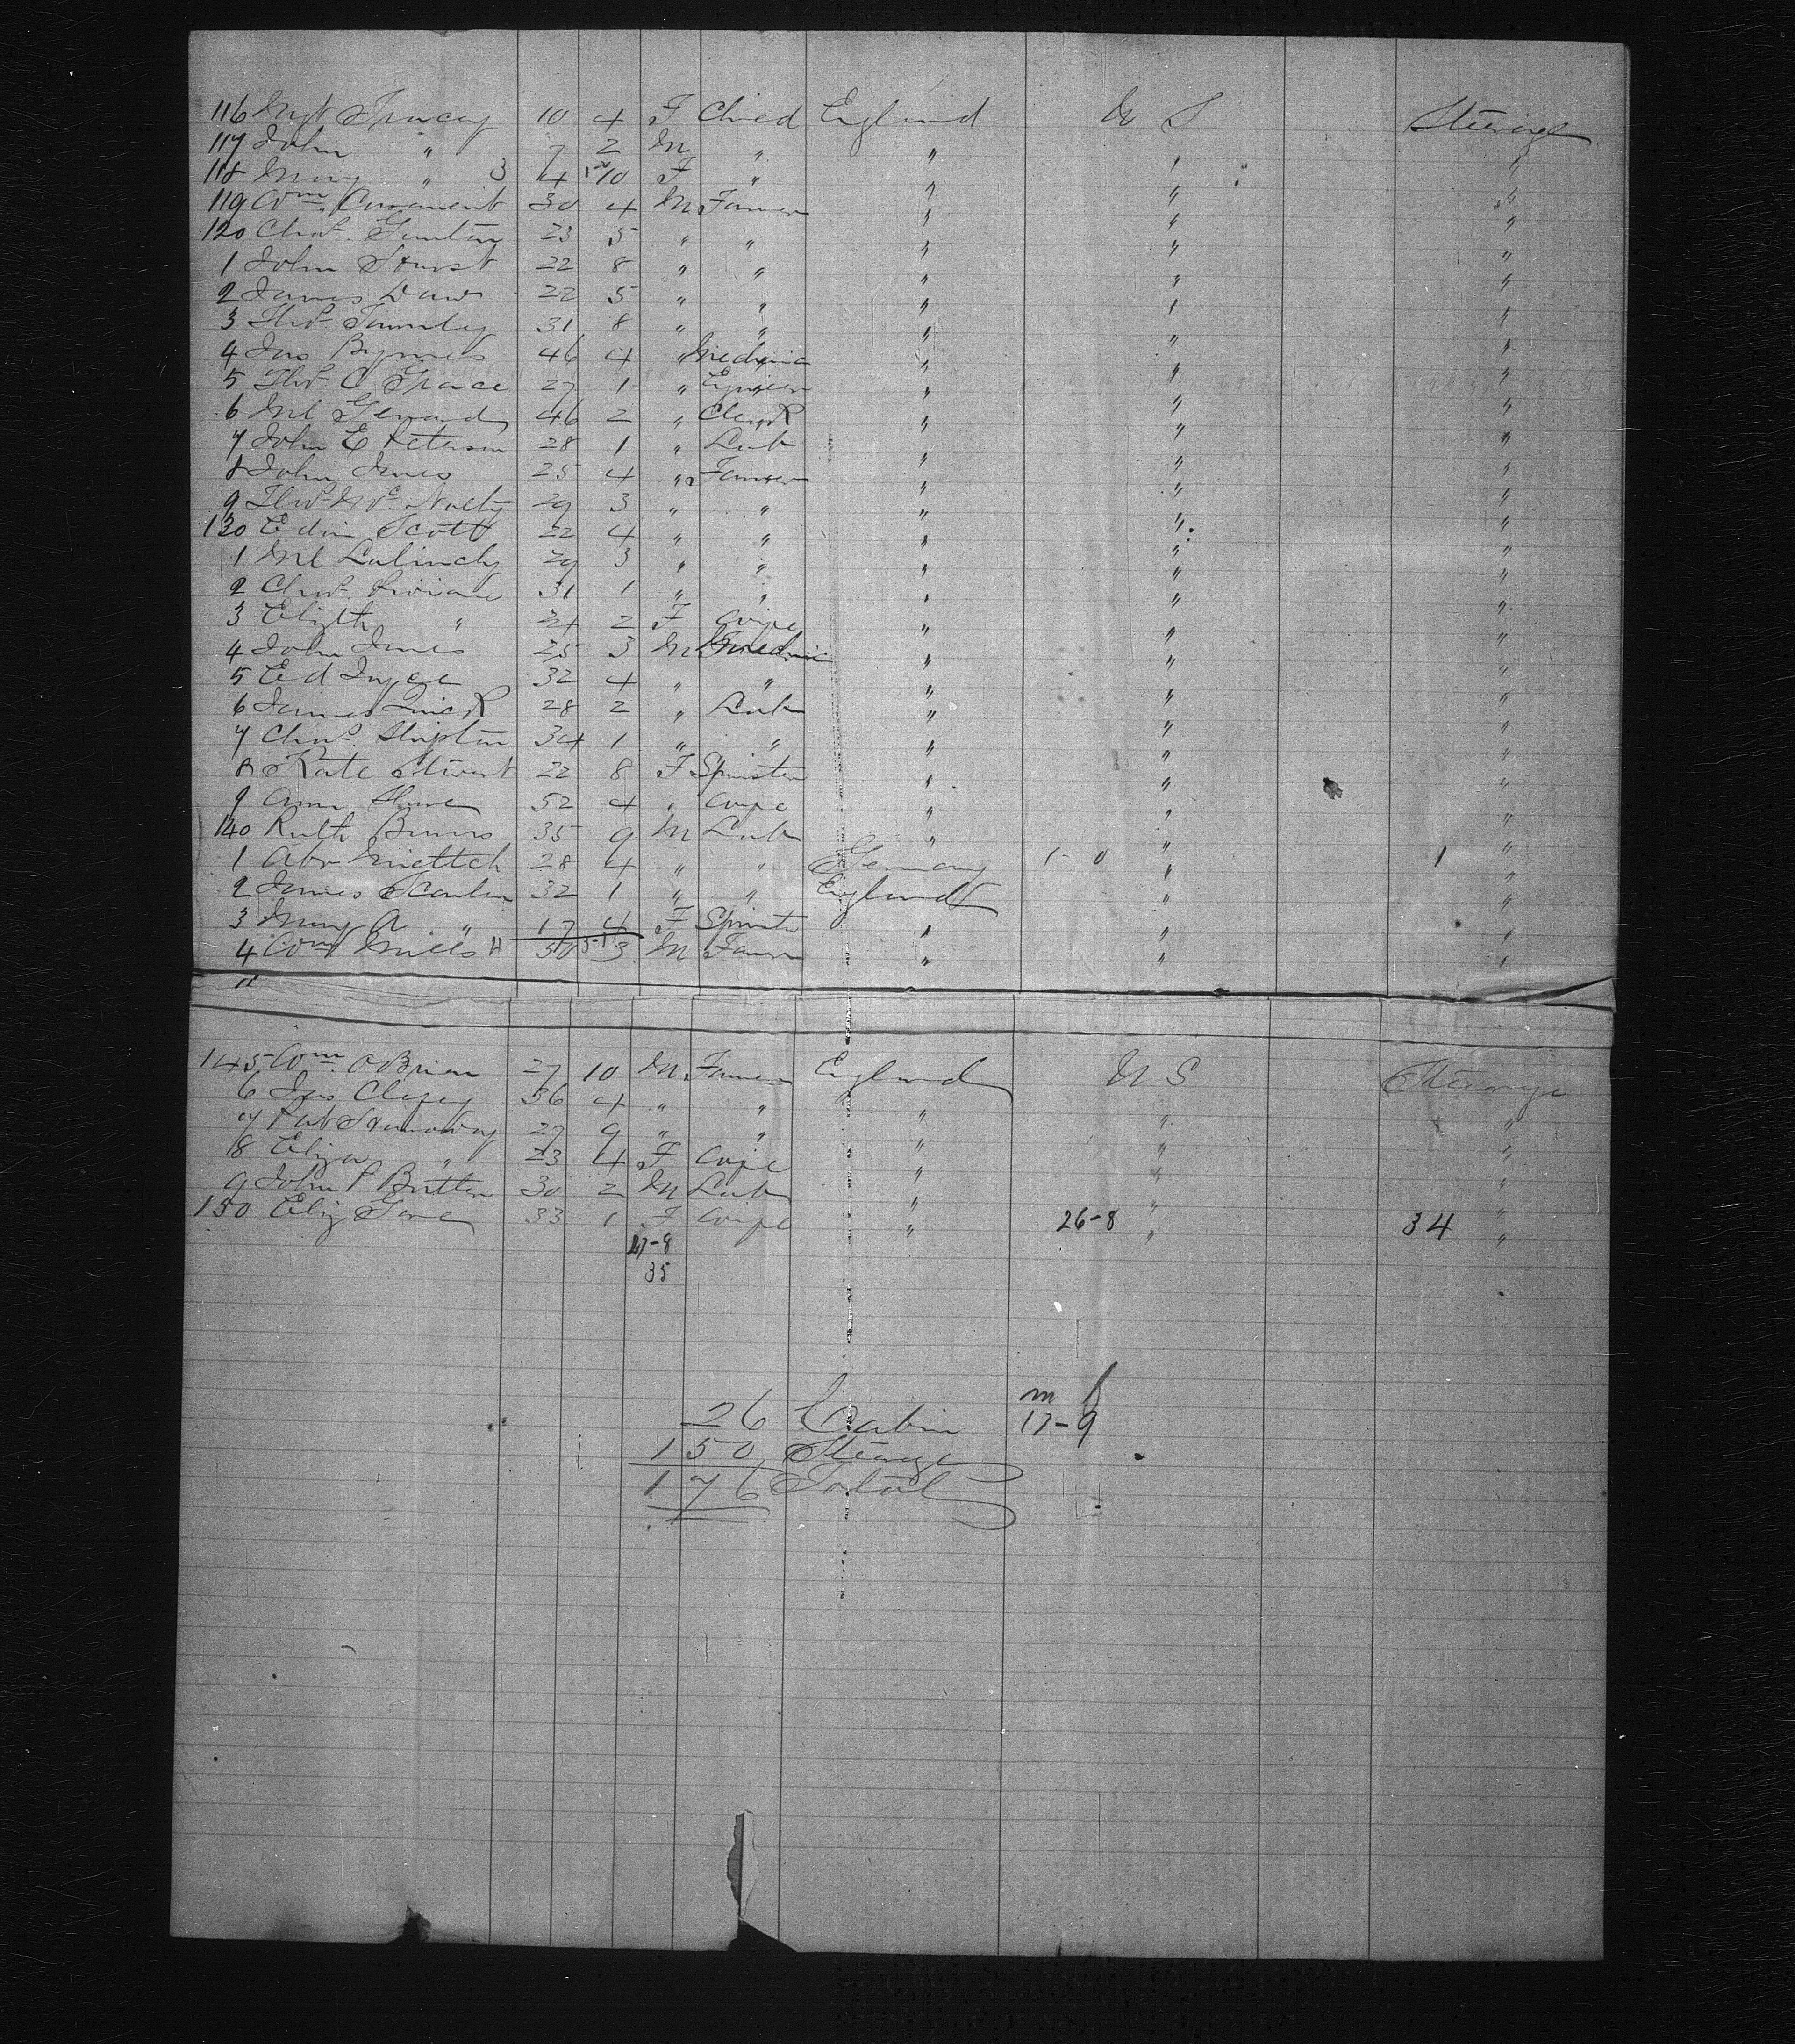 116 Mgt Tracey 10 4 F Child England U S Steerage
117 John " 7 2 M " " " "
118 Mary " 3 4 10 F " " " "
119 Wm 30 4 M Farmer " " "
120 Chas. 23 5 " " " " "
1 John Hurst 22 8 " " " " "
2 James Daw 22 5 " " " " "
3 Thos. 31 8 " " " " "
4 Jas Byrnes 46 4 " Mechanic " " "
5 Thos. C Grace 27 1 " " " "
6 Ml 46 2 " Clerk " " "
7 John E Peterson 28 1 " Lab " " "
8 John Jones 25 4 " Farmer " " "
9 Thos. Mc Nulty 29 3 " " " " "
130 Edwin Scott 22 4 " " " " "
1 Ml 29 3 " " " " "
2 Chas. 31 1 " " " " "
3 Elizth " 24 2 F Wife " " "
4 John Jones 25 3 M Mechanic " " "
5 Ed Joyce 32 4 " " " " "
6 James Quick 28 2 " Lab " " "
7 Chas. Shipton 34 1 " " " " "
8 Kate Stewart 22 8 F Spinster " " "
9 Ann 52 4 " Wife " " "
140 Ruth 35 9 M Lab " " "
1 Abr 28 4 " " Germany 1-0 " 1 "
2 James Scanlan 32 1 " " England " "
3 Mary A " 17 4 F Spinster " " "
4 Wm Mills H 50 3 M Farmer " " "
145 Wm O Brien 27 10 M Farmer England U S Steerage
6 Jas 36 4 " " " " "
7 Pat 27 9 " " " " "
8 Eliza " 23 4 F Wife " " "
9 John P Britten 30 2 M Lab " " "
150 Eliz 33 1 F Wife " 26-8 " 34 "
27-8
35
m f
26 Cabin 17-9
150 Steerage
176 Total